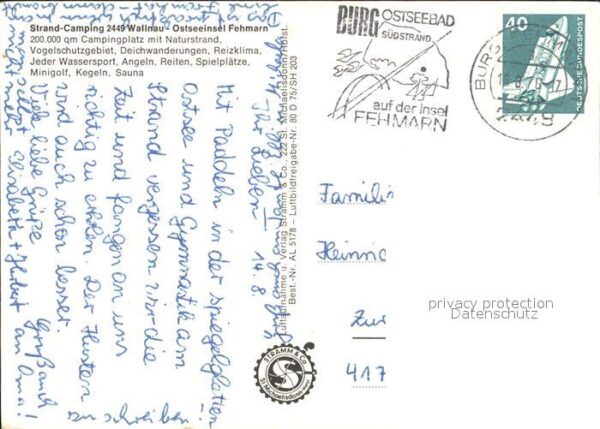 Strand-Camping 2449 Wallnau - Ostseeinsel Fehmarn
200.000 qm Campingplatz mit Naturstrand,
Vogelschutzgebiet, Deichwanderungen, Reizklima.
Jeder Wassersport, Angeln, Reiten, Spielplätze,
Minigolf, Kegeln, Sauna
BURG OSTSEEBAD
SÜDSTRAND
auf der Insel
FEHMARN
40
DEUTSCHE BUNDESPOST
BURG
2449
Luftaufnahme u. Verlag Stramm & Co. 222 St. Michaelisdonn/Holst.
Best.-Nr. AL 5178 - Luftbildfreigabe-Nr. 80 D 75/SH 203
STRAMM & CO.
St. Michaelisdonn
Ihr Lieben! 14. 8.
Mit Paddeln in der spiegelglatten
Ostsee und Gymnastik am
Strand vergessen wir die
Zeit und fangen an uns
richtig zu erholen. Der Husten
wird auch schon besser.
Viele liebe Grüße
Elisabeth + Gruß auch
an Oma!
zu schreiben!
Familie
Heinric
Zur
417
privacy protection
Datenschutz